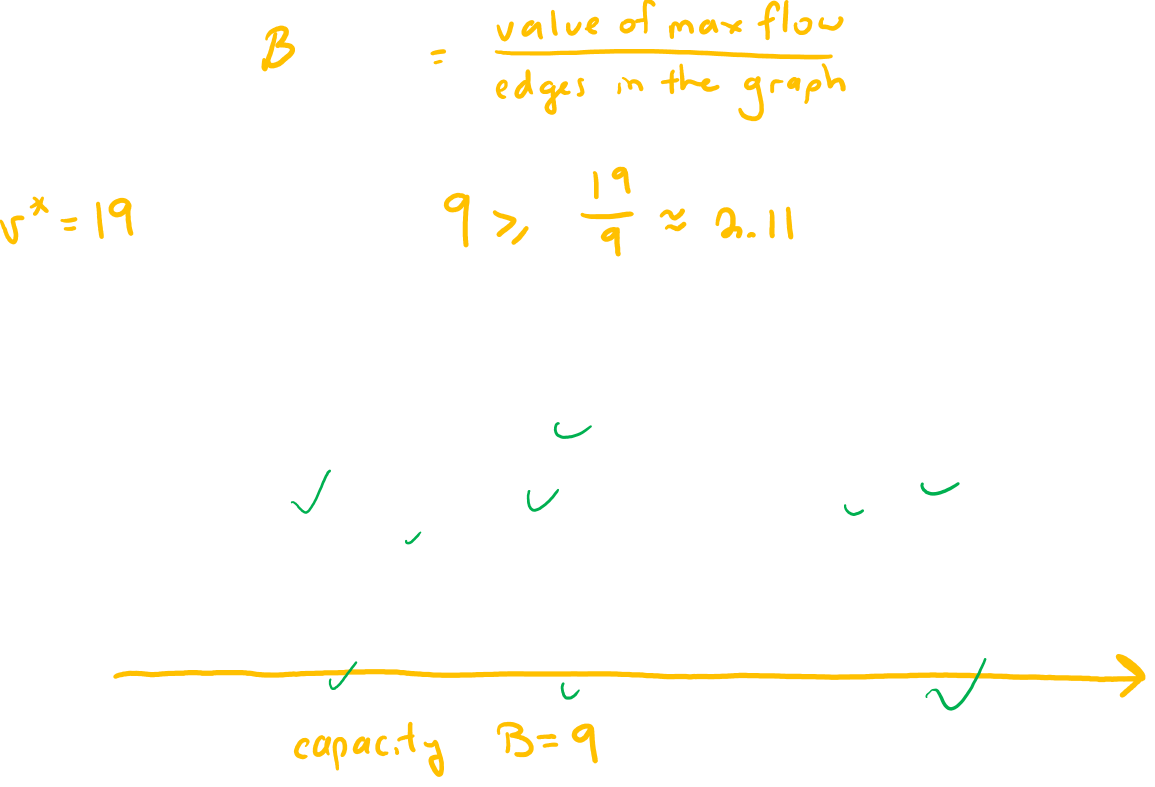 B = value of max flow / edges in the graph
v* = 19
9 ⩾ 19/9 ≈ 2.11
capacity B = 9